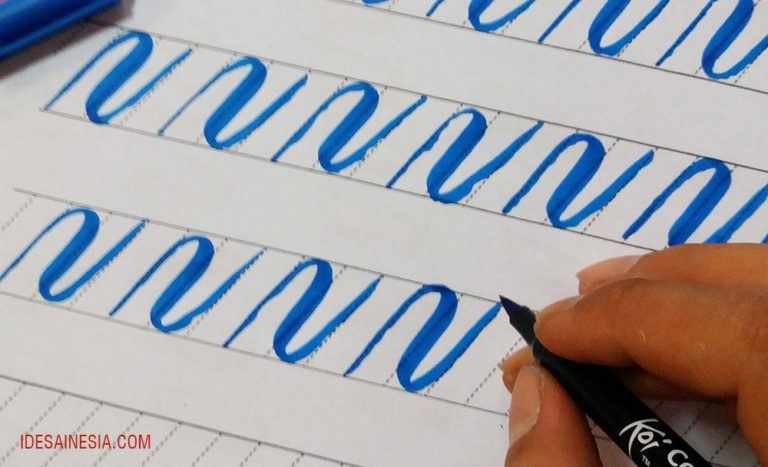 IDESAINESIA.COM
Koi